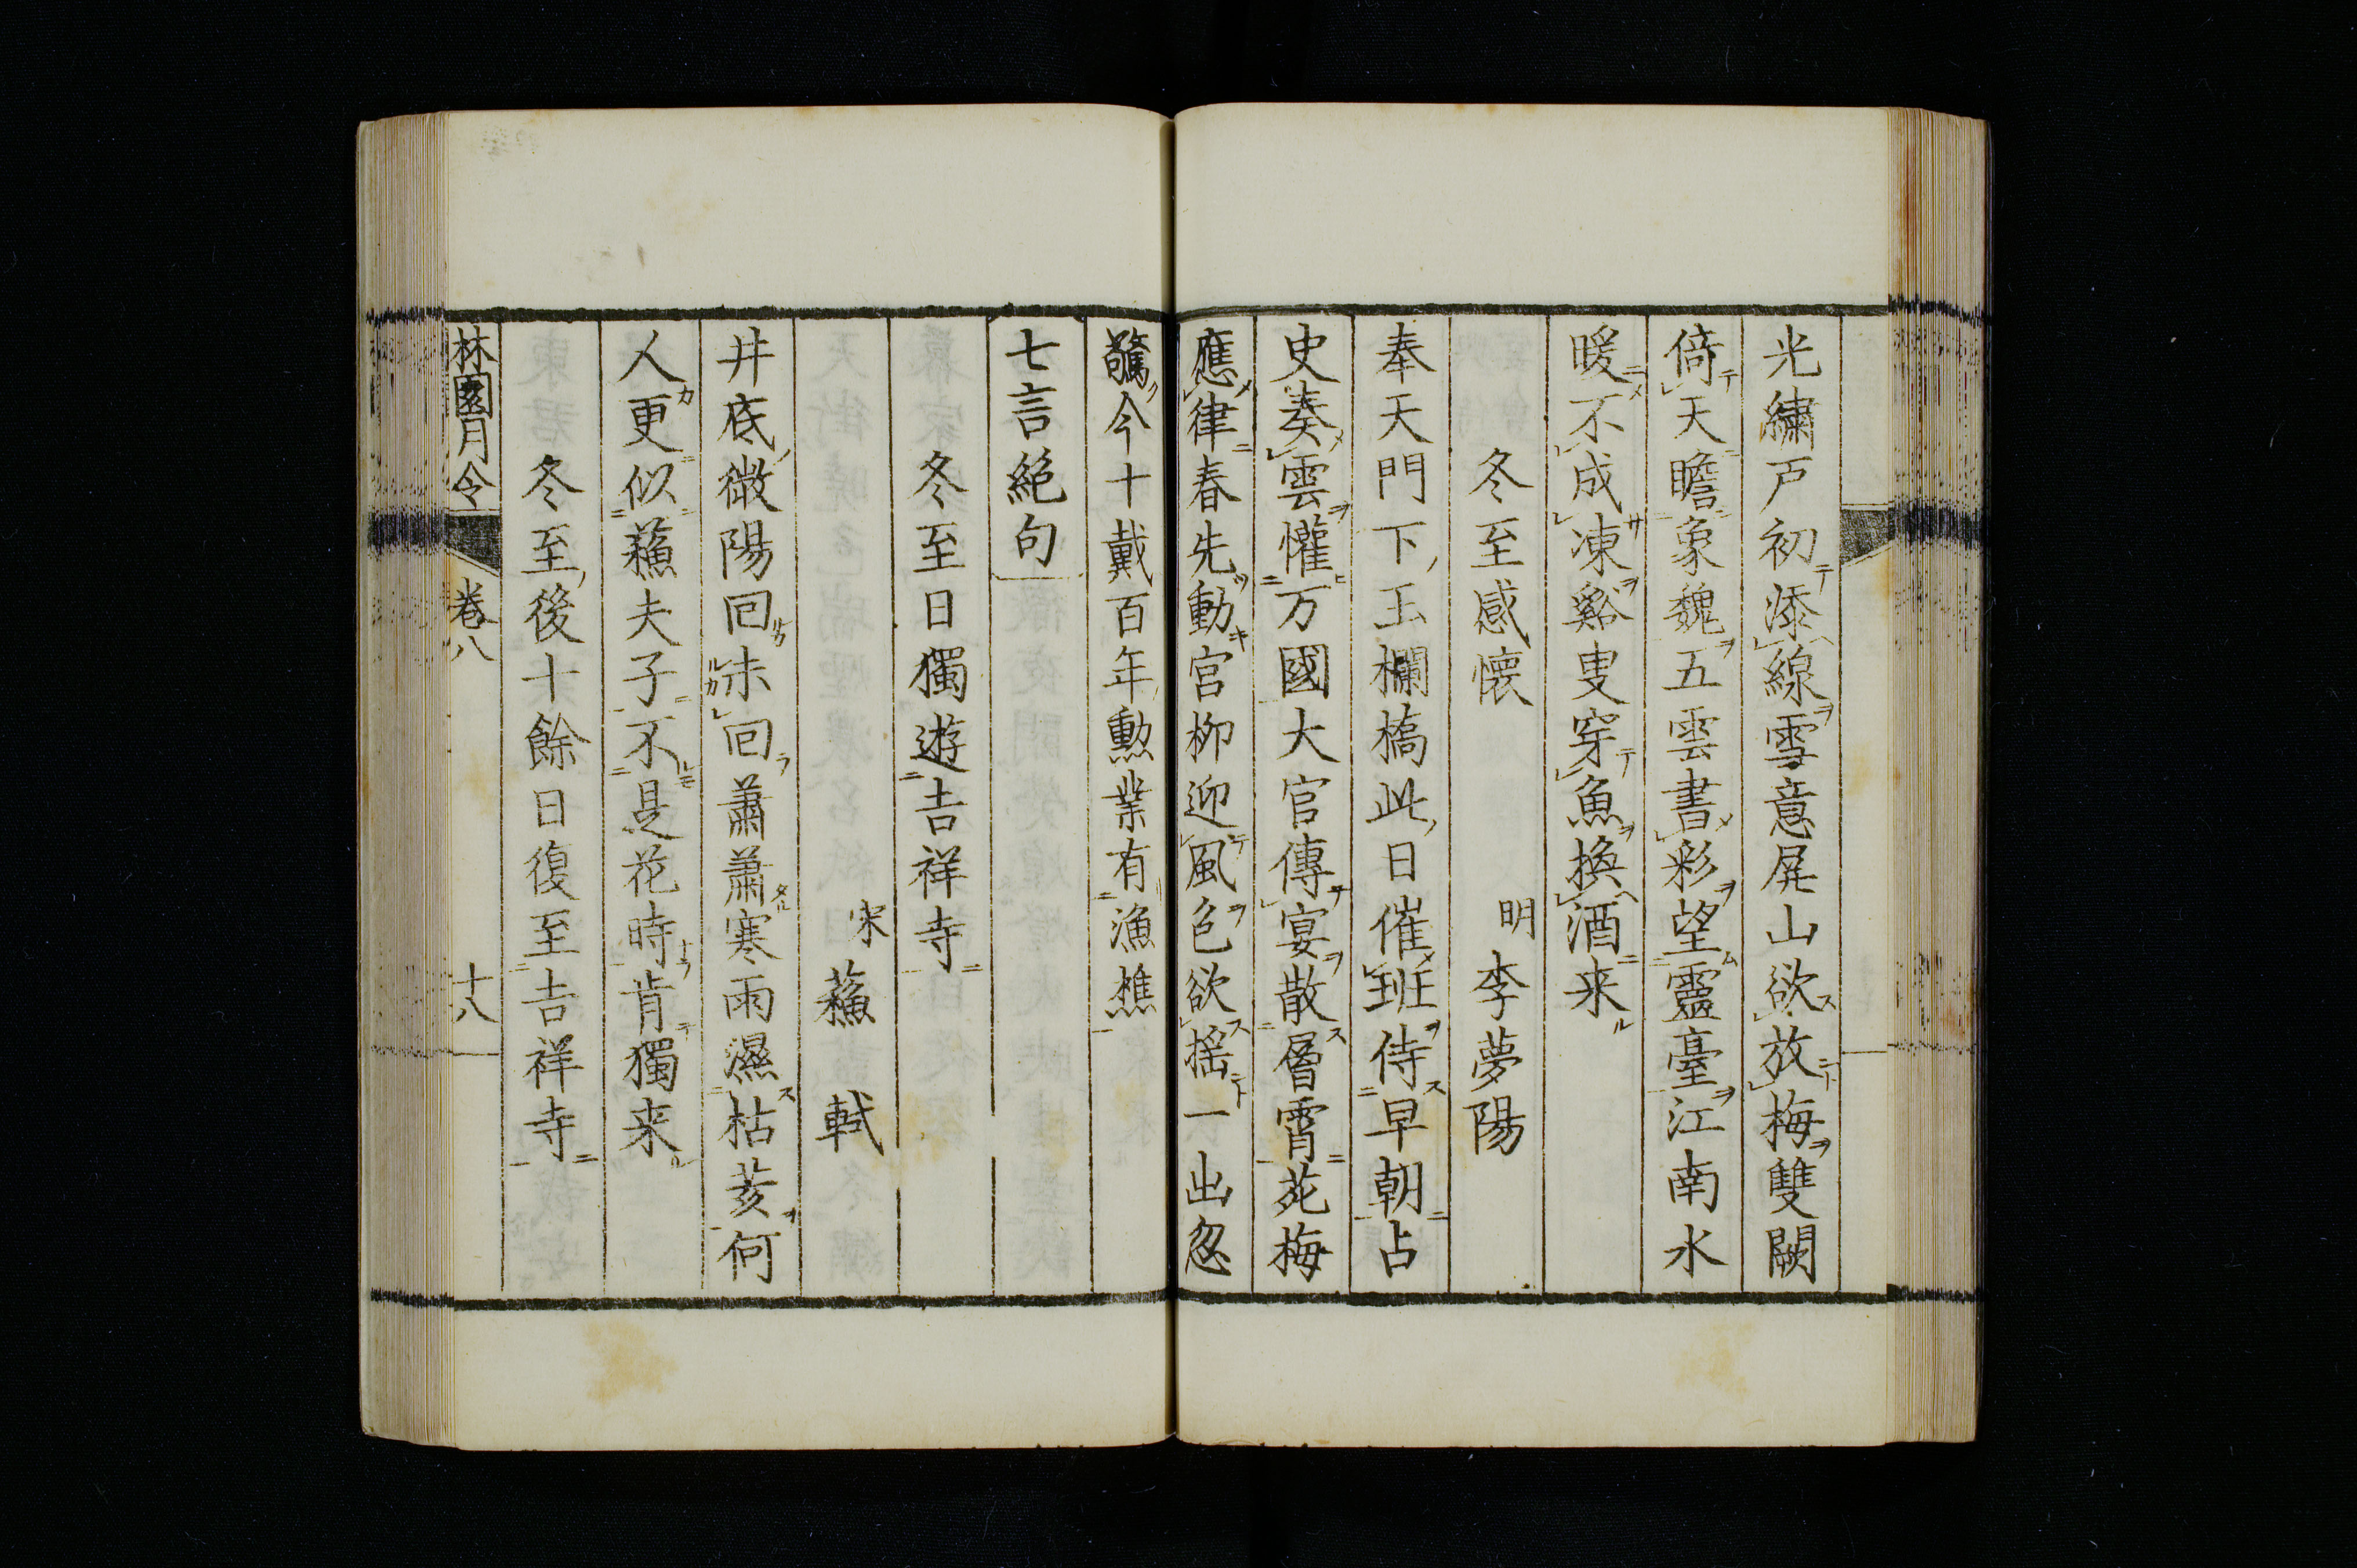 光繡戸初添線雪意屏山欲放梅雙闕
倚天瞻象魏五雲書彩望靈臺江南水
暖不成凍谿叟穿魚換酒来
冬至感懐
明 李夢陽
奉天門下玉欄橋此日催班侍早朝占
史奏雲懽万國大官傳宴散層霄苑梅
應律春先動宮柳迎風色欲揺一出忽
驚今十戴百年勲業有漁樵
七言絕句
冬至日獨遊吉祥寺
宋 蘓軾
井底微陽回未回蕭蕭寒雨濕枯荄何
人更似蘓夫子不是花時肯獨来
冬至後十餘日復至吉祥寺
林園月令 卷八 十八